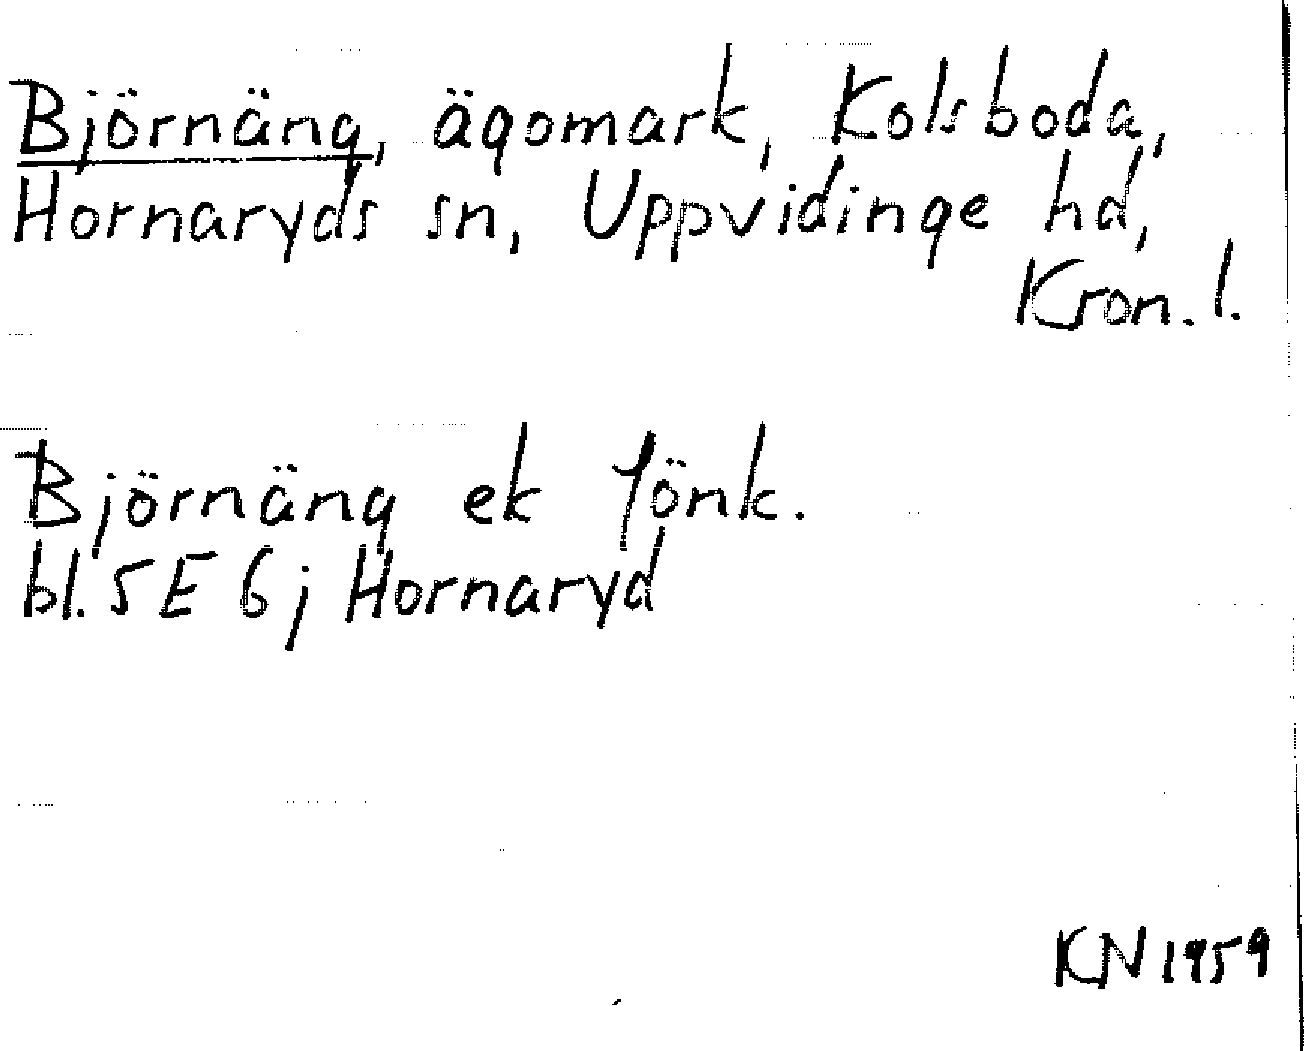 Björnäng, ägomark, Kolsboda,
Hornaryds sn, Uppvidinge hd,
Kron. l.
Björnäng ek Jönk.
bl. 5 E 6 j Hornaryd
KN 1959